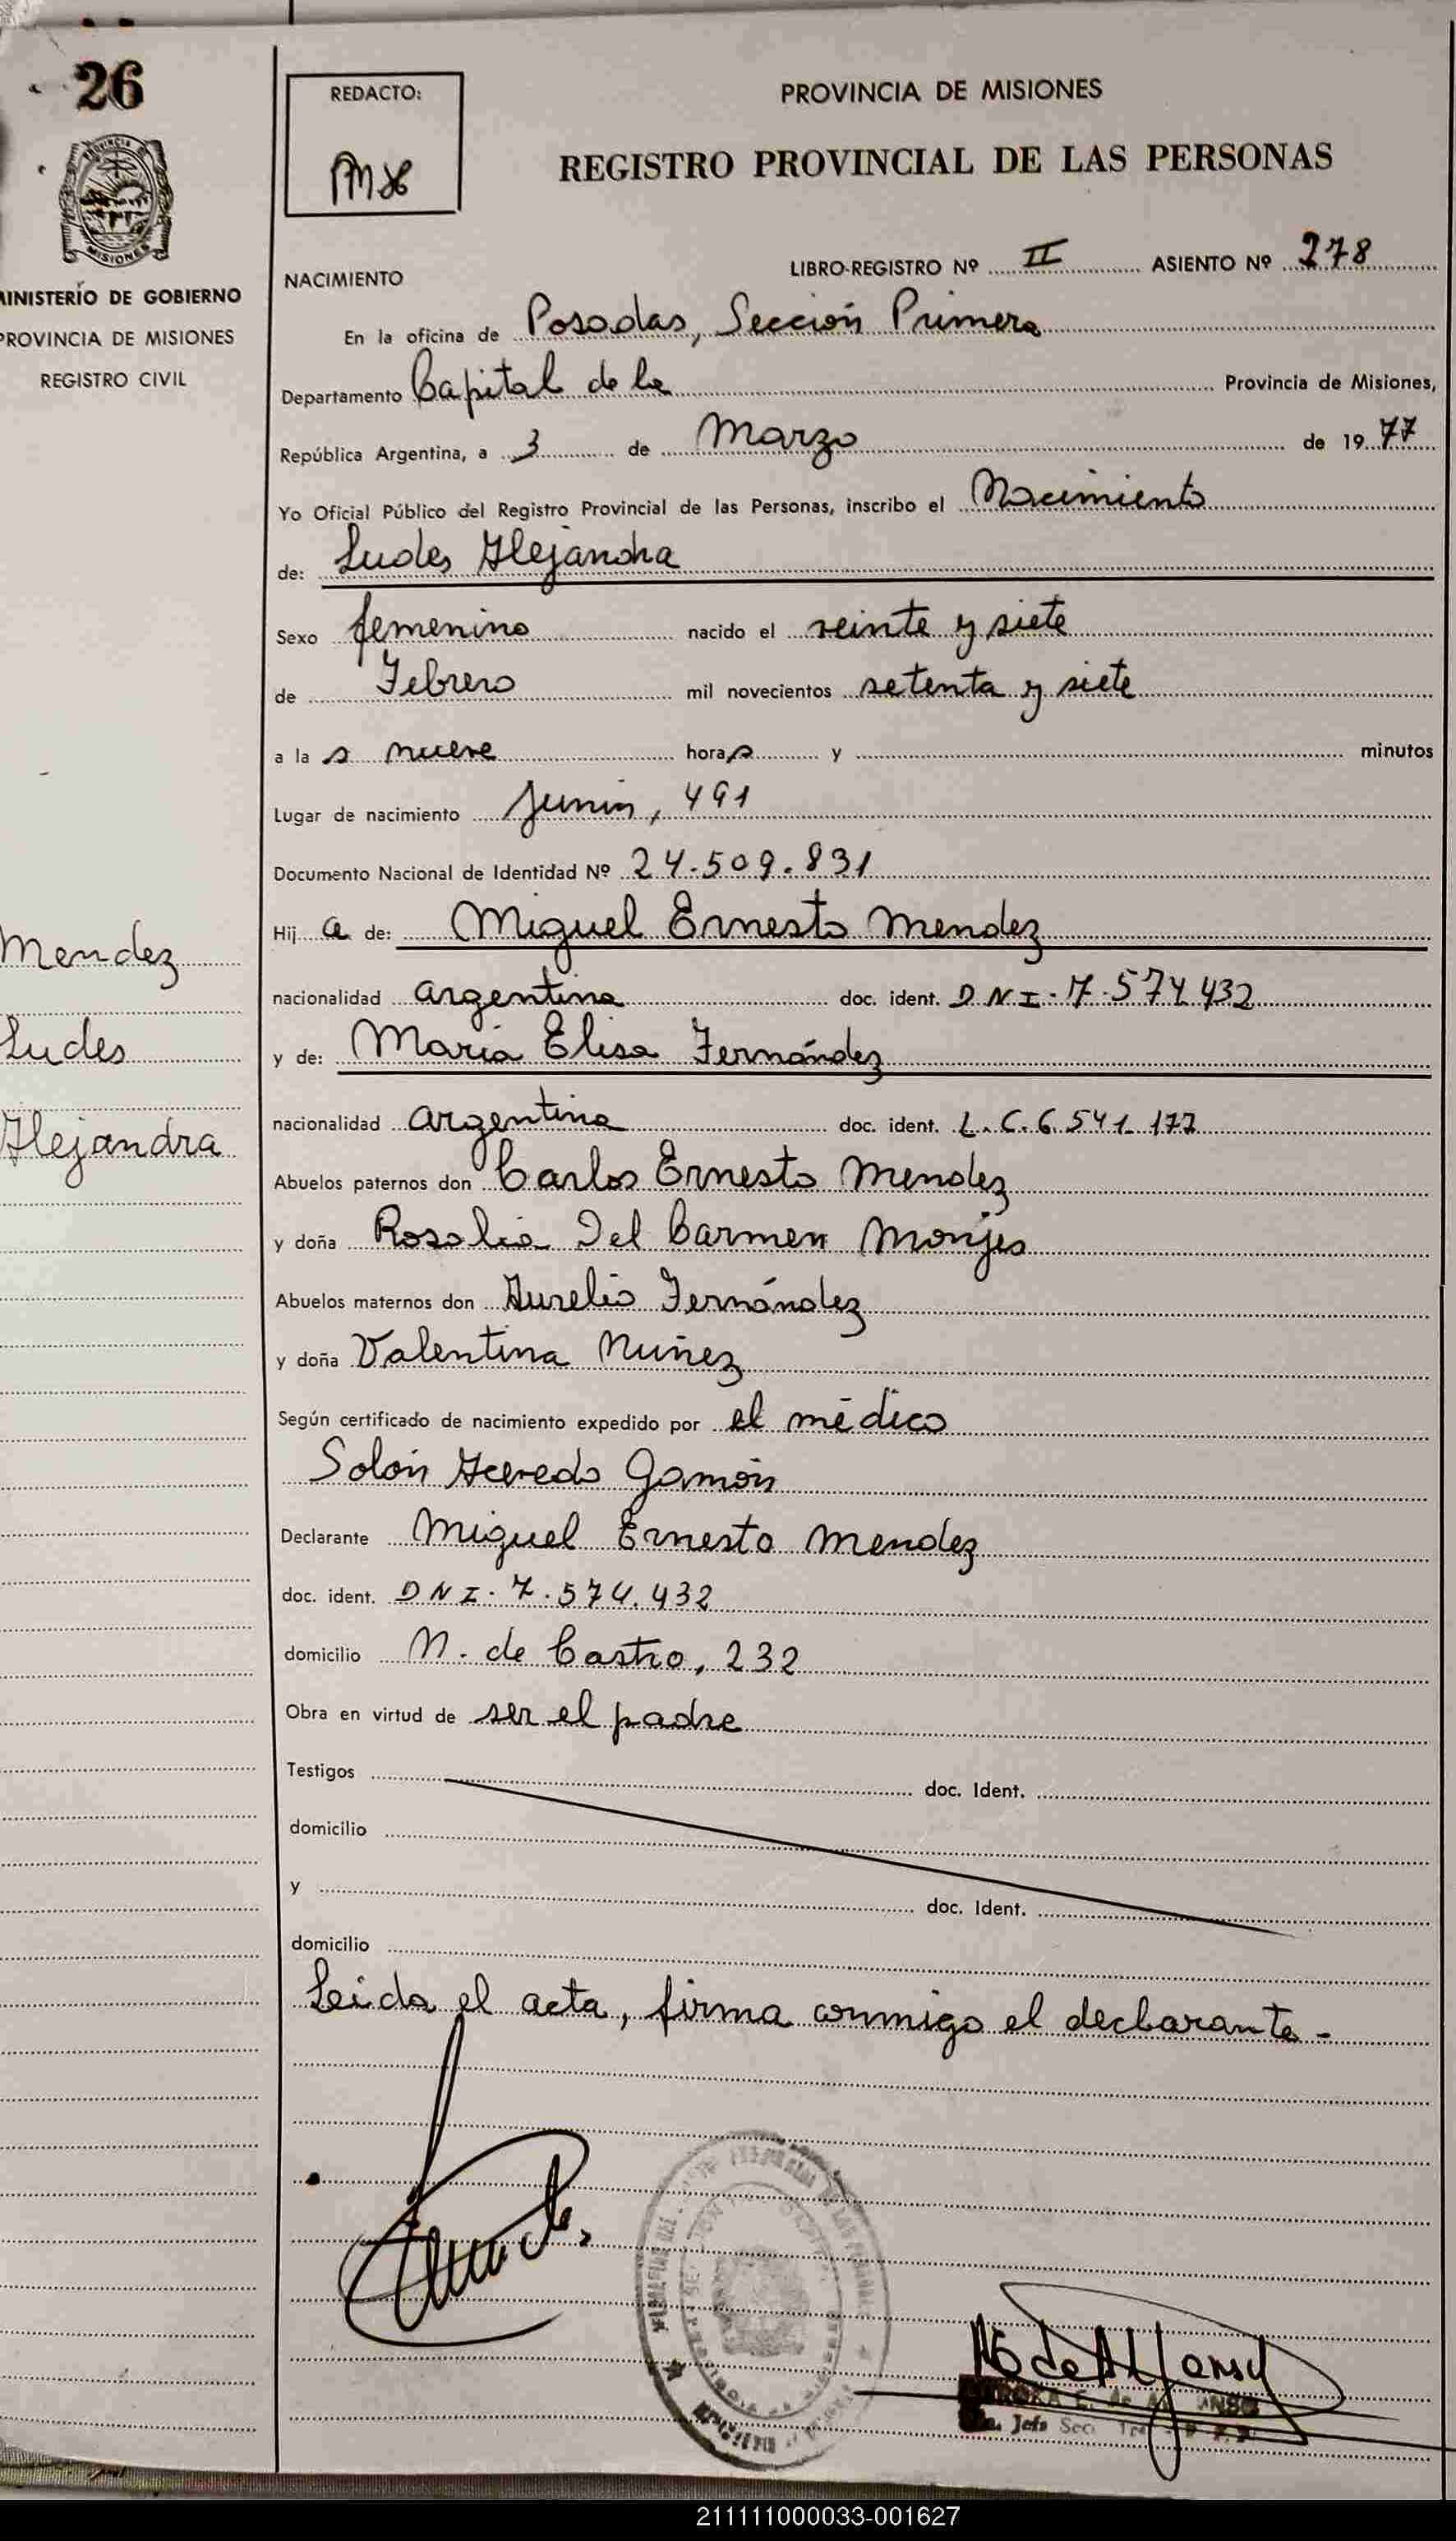 26
MISIONES
MINISTERIO DE GOBIERNO
PROVINCIA DE MISIONES
REGISTRO CIVIL
Mendez
Ludes
Alejandra
REDACTO:
PROVINCIA DE MISIONES
REGISTRO PROVINCIAL DE LAS PERSONAS
NACIMIENTO
LIBRO-REGISTRO Nº II ASIENTO Nº 278
En la oficina de Posadas, Sección Primera
Departamento Capital de la Provincia de Misiones,
República Argentina, a 3 de Marzo de 1977
Yo Oficial Público del Registro Provincial de las Personas, inscribo el Nacimiento
de: Ludes Alejandra
Sexo femenino nacido el veinte y siete
de Febrero mil novecientos setenta y siete
a las nueve horas y minutos
Lugar de nacimiento Junín, 491
Documento Nacional de Identidad Nº 24.509.831
Hija de: Miguel Ernesto Mendez
nacionalidad argentina doc. ident. DNI. 7.574.432
y de: María Elisa Fernández
nacionalidad argentina doc. ident. L.C. 6.541.177
Abuelos paternos don Carlos Ernesto Mendez
y doña Rosalia Del Carmen Monjes
Abuelos maternos don Aurelio Fernández
y doña Valentina Nuñez
Según certificado de nacimiento expedido por el médico
Solón Acevedo Gamón
Declarante Miguel Ernesto Mendez
doc. ident. DNI. 7.574.432
domicilio N. de Castro, 232
Obra en virtud de ser el padre
Testigos doc. Ident.
domicilio
y doc. Ident.
domicilio
Leida el acta, firma conmigo el declarante-
Jefe Sec.
211111000033-001627